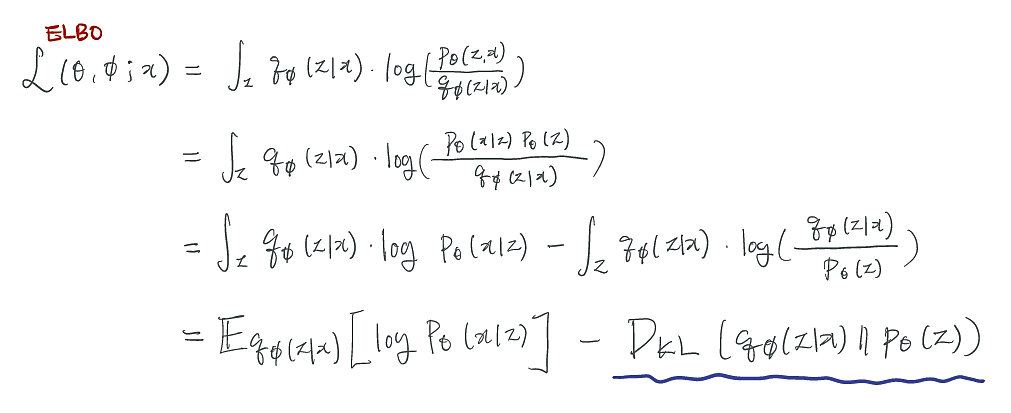 ELBO
ℒ(θ, φ; x) = ∫_z q_φ(z|x) · log(p_θ(z,x) / q_φ(z|x))
= ∫_z q_φ(z|x) · log(p_θ(x|z) p_θ(z) / q_φ(z|x))
= ∫_z q_φ(z|x) · log p_θ(x|z) − ∫_z q_φ(z|x) · log(q_φ(z|x) / p_θ(z))
= 𝔼_{q_φ(z|x)}[log p_θ(x|z)] − D_KL(q_φ(z|x) || p_θ(z))